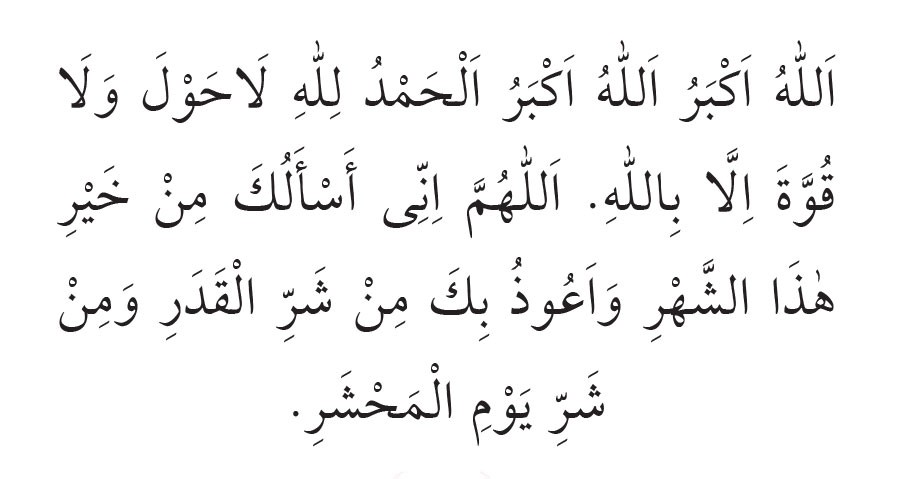 اَللّٰهُ اَكْبَرُ اَللّٰهُ اَكْبَرُ اَلْحَمْدُ لِلّٰهِ لَاحَوْلَ وَلَا
قُوَّةَ اِلَّا بِاللّٰهِ. اَللّٰهُمَّ اِنِّى أَسْأَلُكَ مِنْ خَيْرِ
هٰذَا الشَّهْرِ وَاَعُوذُ بِكَ مِنْ شَرِّ الْقَدَرِ وَمِنْ
شَرِّ يَوْمِ الْمَحْشَرِ.